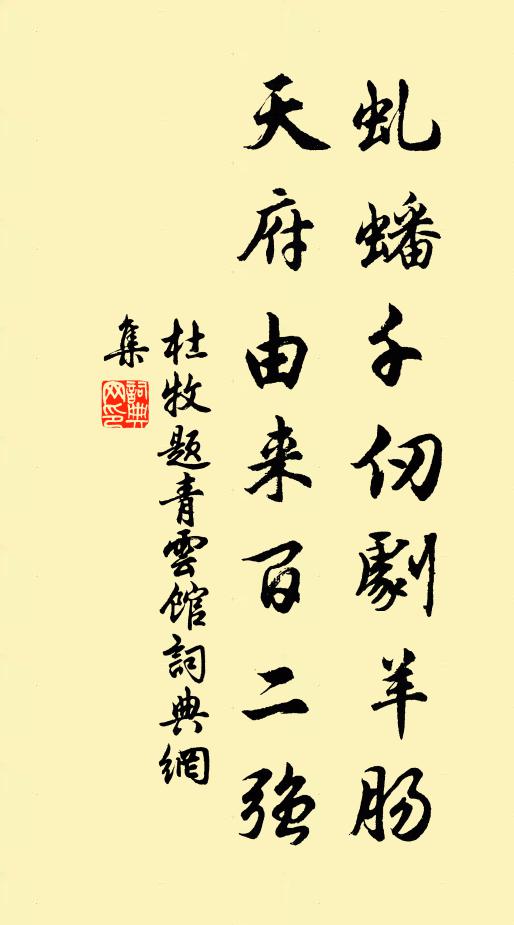 虬蟠千仞劇羊肠
天府由来百二强
杜牧题青雲館詞典網
集
詞典網印